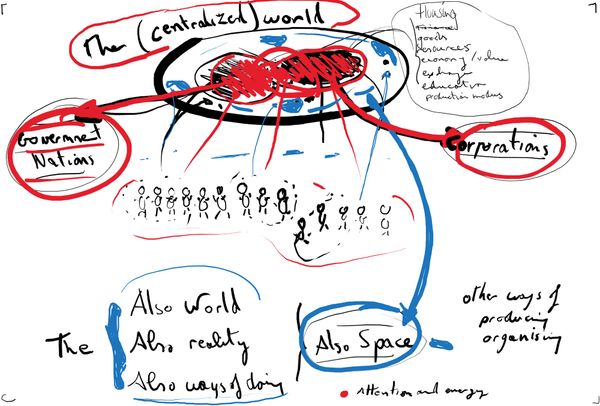 The (centralized) world
Housing
goods
resources
economy/value
exchange
education
production modes
Government
Nations
Corporations
Also World
The
Also reality
Also ways of doing
Also Space
other ways of
producing
organising
Attention and energy